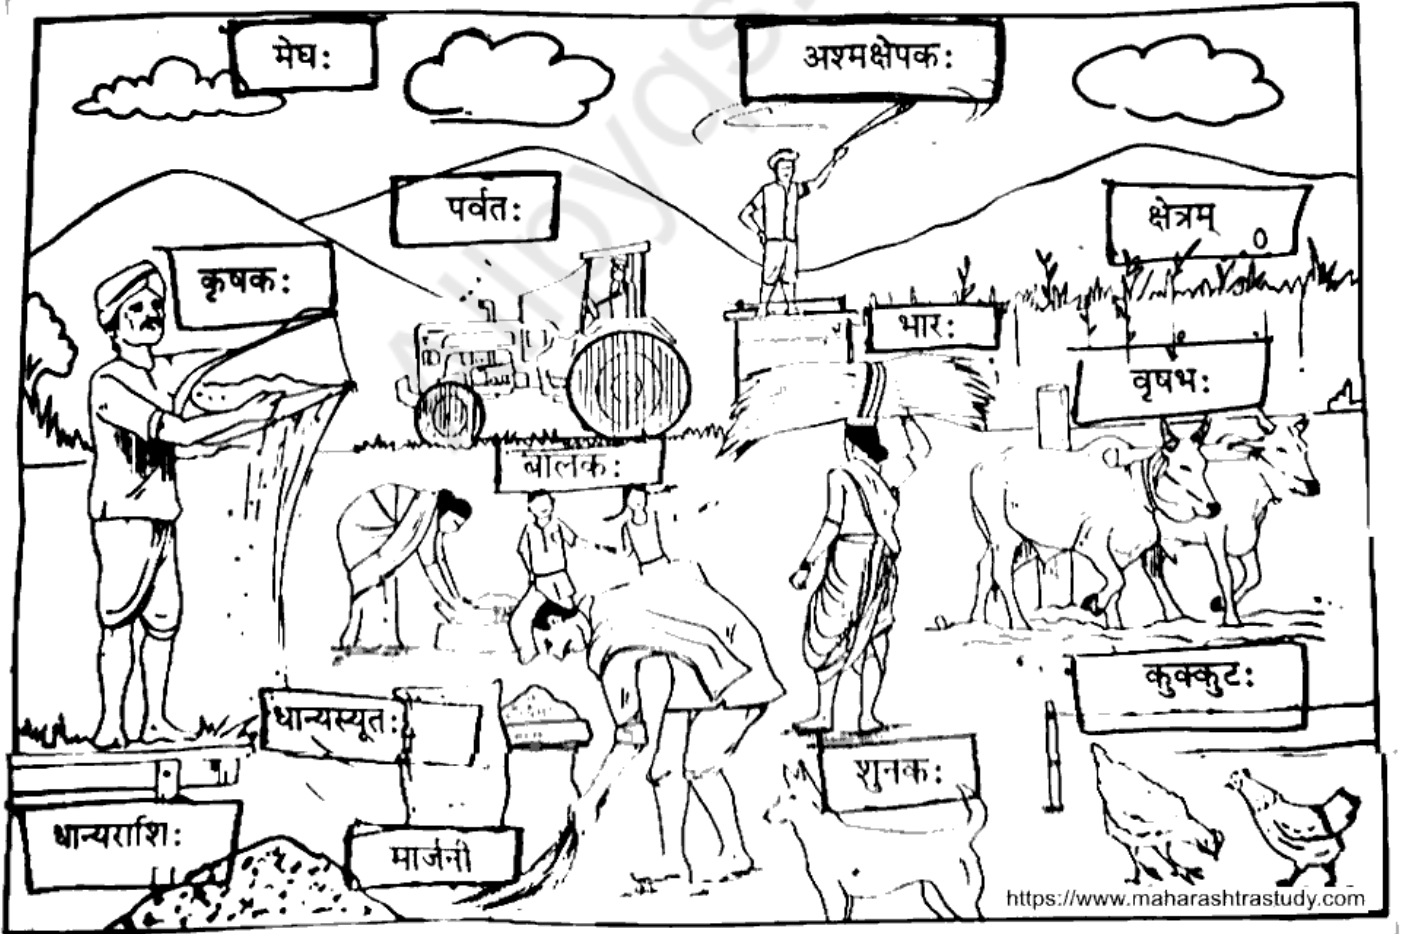 मेघः
अश्मक्षेपकः
पर्वतः
क्षेत्रम्
कृषकः
भारः
वृषभः
बालकः
कुक्कुटः
धान्यस्यूतः
शुनकः
धान्यराशिः
मार्जनी
https://www.maharashtrastudy.com